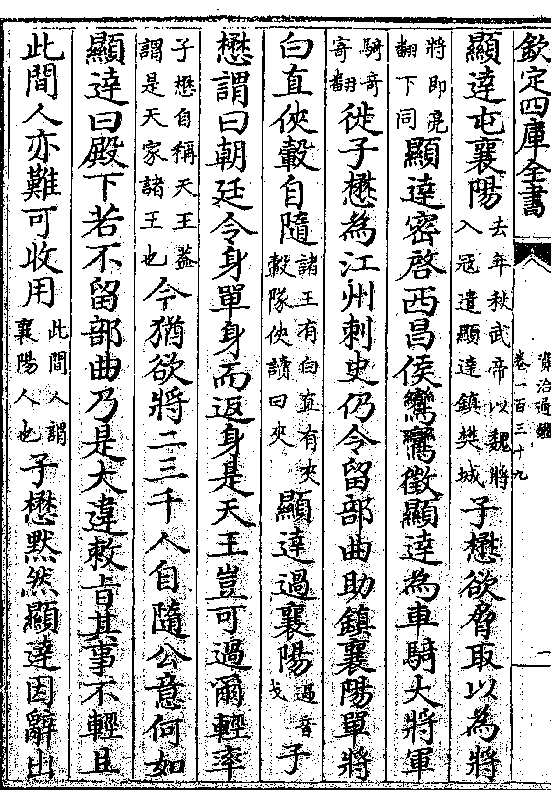 欽定四庫全書
資治通鑑
卷一百三十九
一
顯達屯襄陽去年秋武帝以魏將入寇遣顯達鎮樊城子懋欲脅取以為將
將即亮翻下同顯達密啓西昌侯鸞鸞徵顯達為車騎大將軍
騎奇寄翻徙子懋為江州刺史仍令留部曲助鎮襄陽單將
白直俠轂自隨諸王有白直有夾轂隊俠讀曰夾顯達過襄陽過音戈子
懋謂曰朝廷令身單身而返身是天王豈可過爾輕率
子懋自稱天王蓋謂是天家諸王也今猶欲將二三千人自隨公意何如
顯達曰殿下若不留部曲乃是大違敕旨其事不輕且
此間人亦難可收用此間人謂襄陽人也子懋默然顯達因辭出